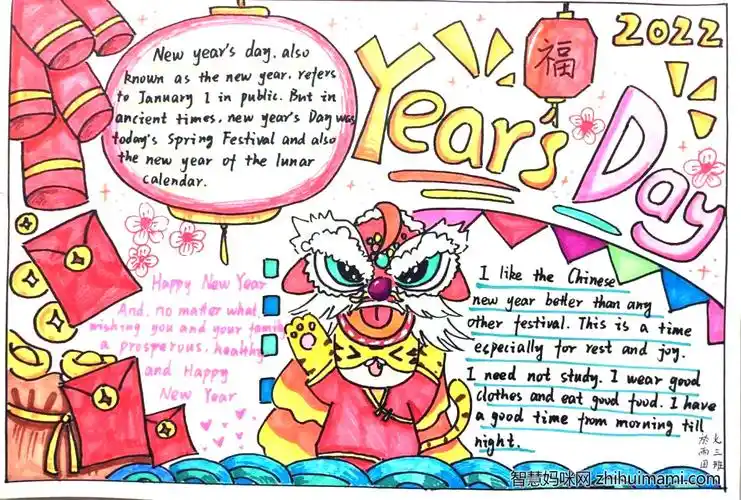 New year's day, also
known as the new year, refers
to January 1 in public. But in
ancient times, new year's Day was
today's Spring Festival and also
the new year of the lunar
calendar.
福
2022
Year's
Day
Happy New Year
And, no matter what,
wishing you and your family
a prosperous, healthy
and Happy
New Year
I like the Chinese
new year better than any
other festival. This is a time
especially for rest and joy.
I need not study. I wear good
clothes and eat good food. I have
a good time from morning till
night.
三班
智慧妈咪网 zhihuimami.com